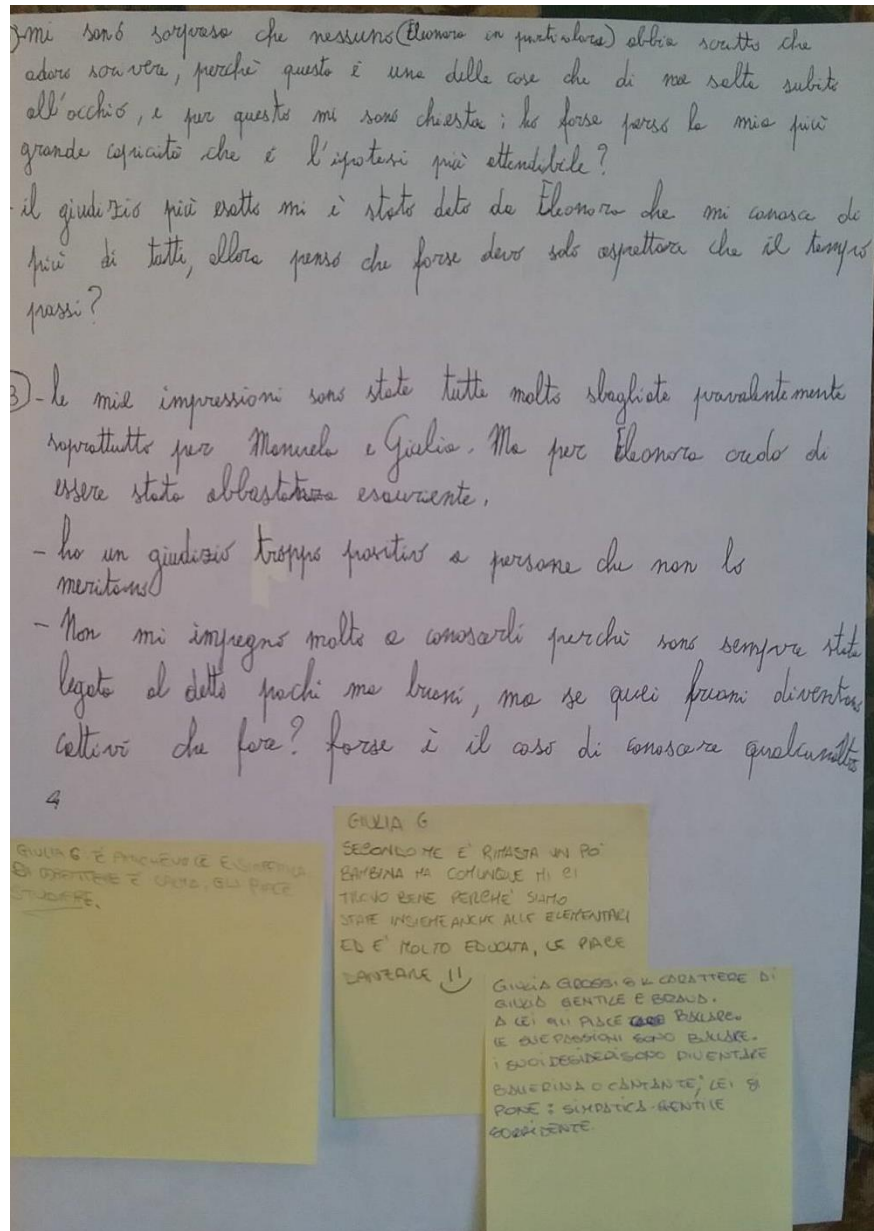 )-mi sono sorpresa che nessuno (Eleonora in particolare) abbia scritto che
adoro scrivere, perchè questo è una delle cose che di me salta subito
all'occhio, e per questto mi sono chiesta: ho forse perso la mia più
grande capicità che è l'ipotesi più attendibile?
- il giudizio più esatto mi è stato dato da Eleonora che mi conosce di
più di tutti, allora penso che forse devo solo aspettare che il tempo
passi?
3)- le mie impressioni sono state tutte molto sbagliate prevalentemente
soprattutto per Manuela e Giulia. Ma per Eleonora credo di
essere stata abbastanza esauriente.
- ho un giudizio troppo positivo a persone che non lo
meritano
- Non mi impegno molto a conoscerli perchè sono sempre stata
legata al detto pochi ma buoni, ma se quei buoni diventano
cattivi che fare? forse è il caso di conoscere qualcunaltro
4
GIULIA G È PIACEVOLE E SIMPATICA
DI CARATTERE È CALMA, GLI PIACE
STUDIARE.
GIULIA G
SECONDO ME E' RIMASTA UN PO'
BAMBINA MA COMUNQUE MI CI
TROVO BENE PERCHE' SIAMO
STATE INSIEME ANCHE ALLE ELEMENTARI
ED E' MOLTO EDUCATA, LE PIACE
DANZARE !!
GIULIA GROSSI IL CARATTERE DI
GIULIA GENTILE E BRAVA.
A LEI GLI PIACE BALLARE.
LE SUE PASSIONI SONO BALLARE.
I SUOI DESIDERI SONO DIVENTARE
BALLERINA O CANTANTE, LEI SI
PONE: SIMPATICA-GENTILE
SORRIDENTE.